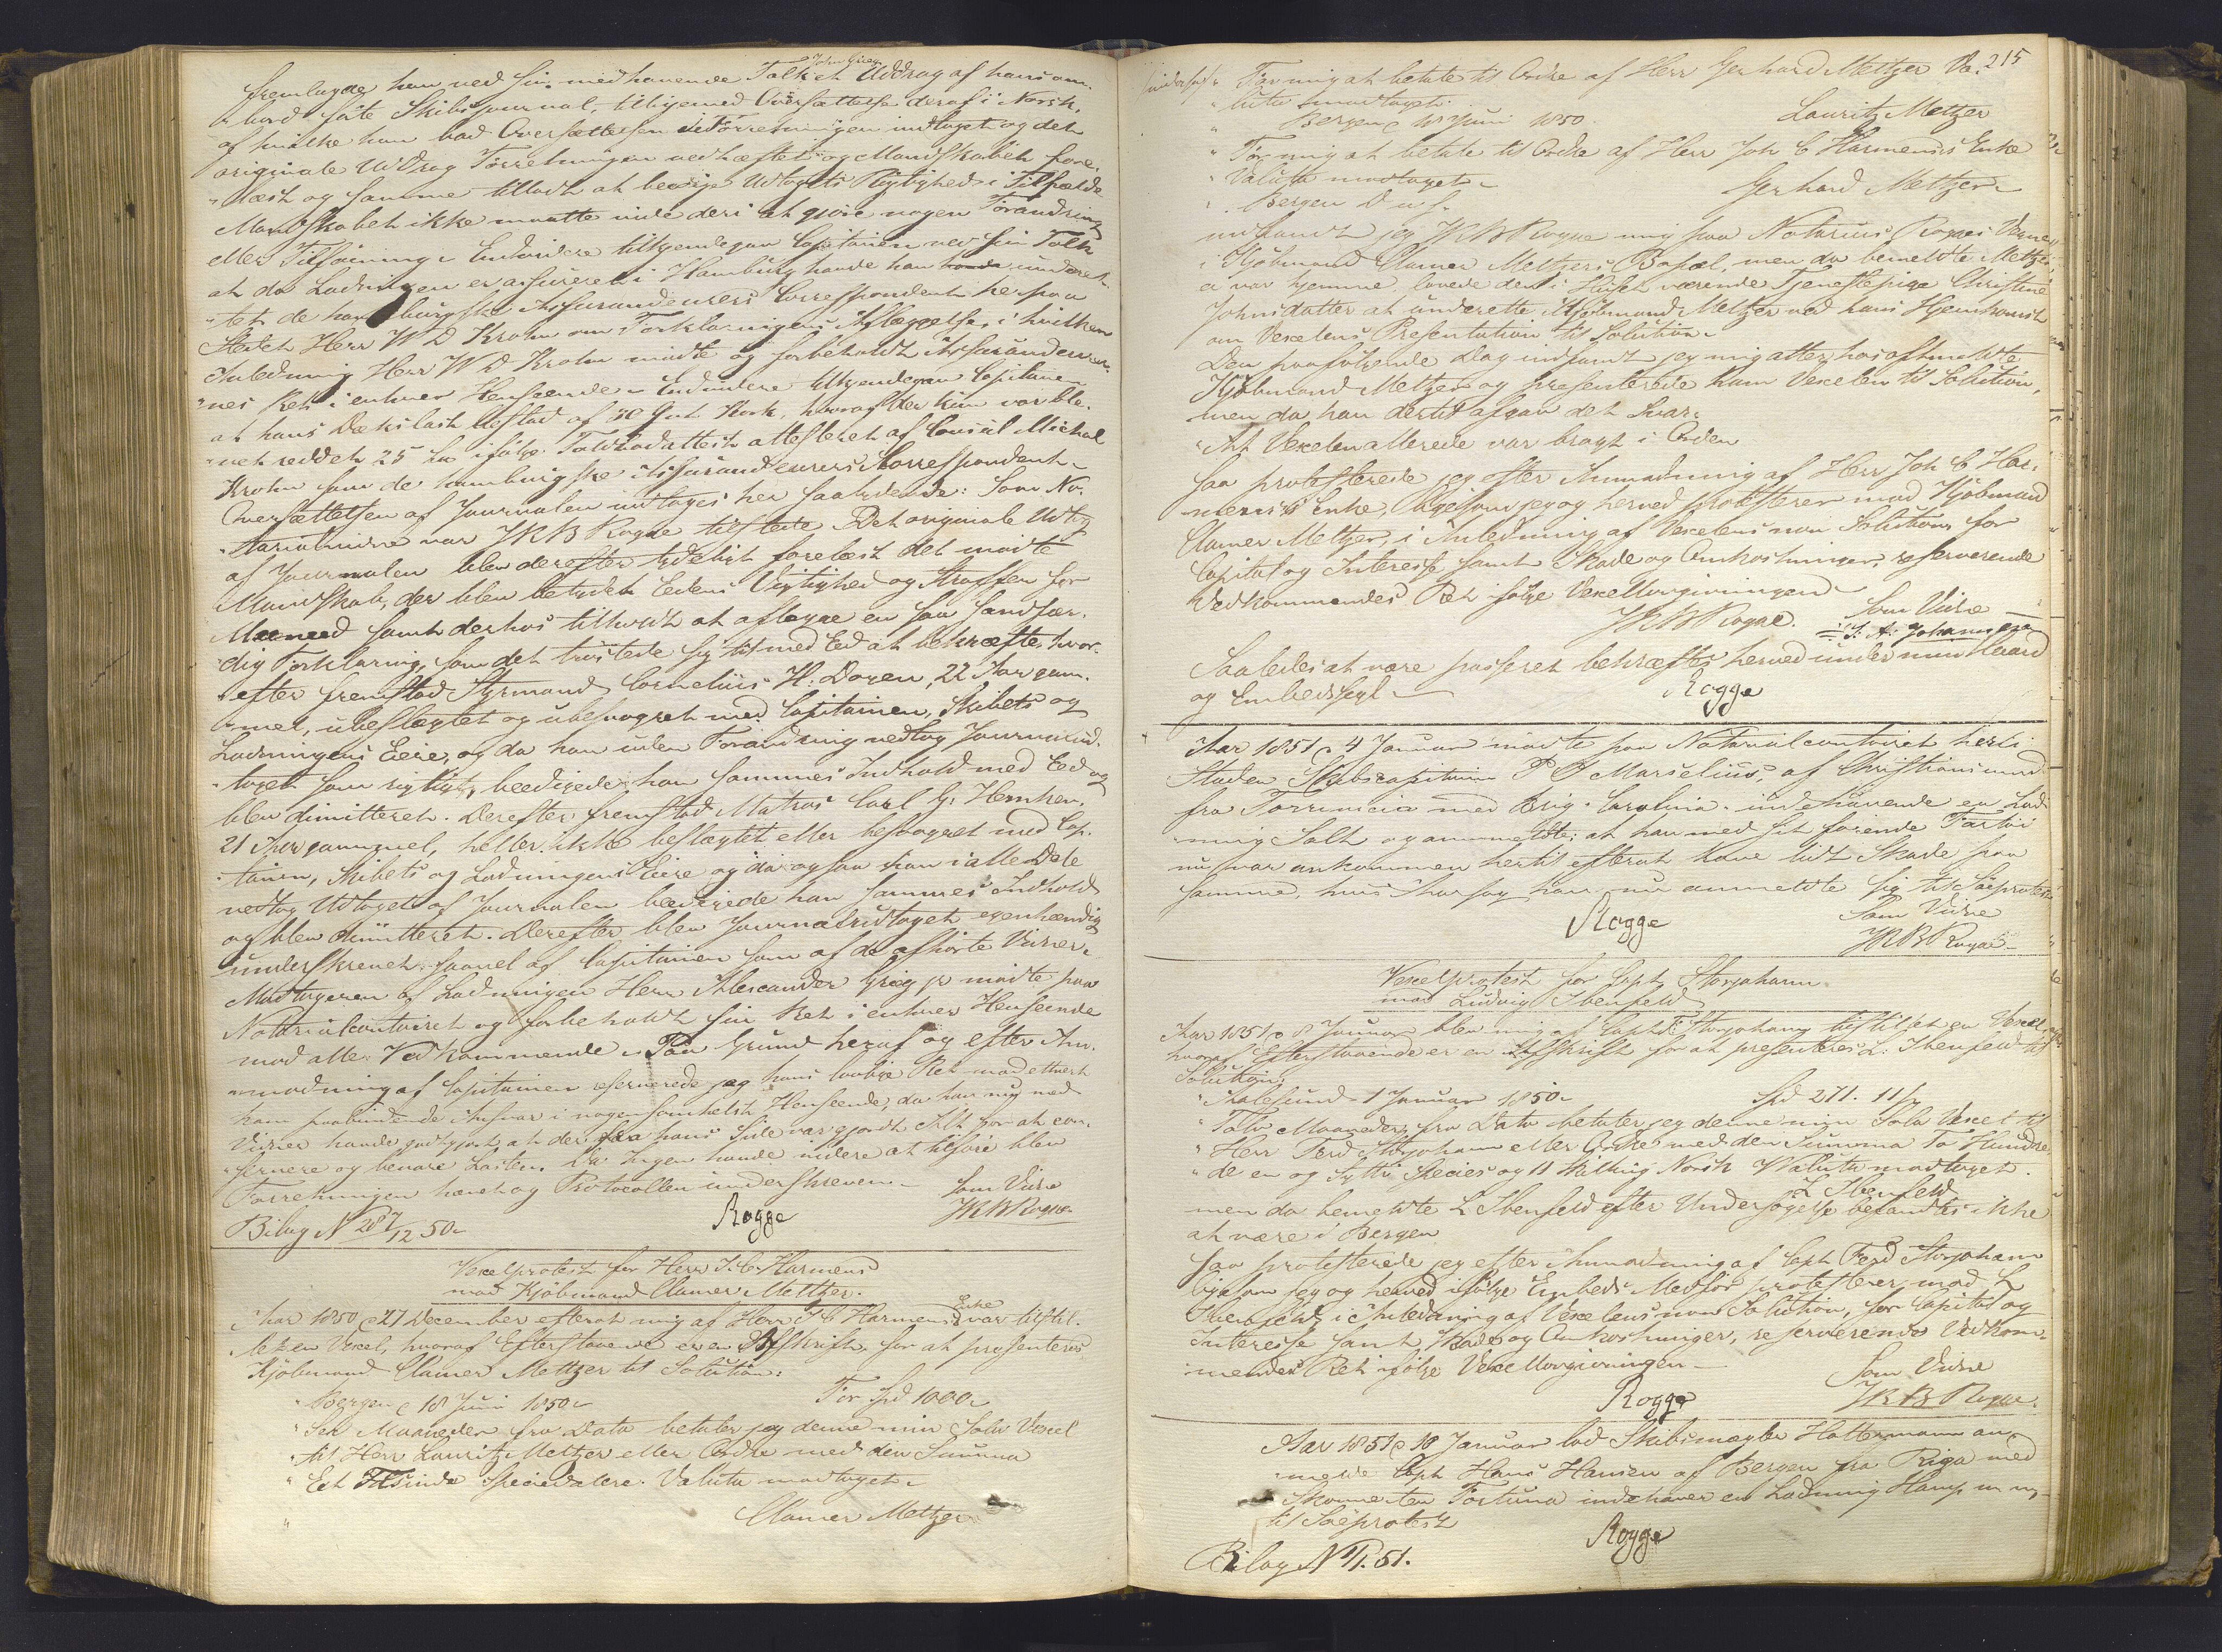 John Grieg
fremlagde han ved sin medhavende Tolk et Uddrag af hans om-
bord førte Skibsjournal, tilligemed Oversættelse deraf i Norsk,
af hvilke han bad Oversættelsen i Forretningen indtaget og det
originale Udtog Forretningen vedhæftet og Mandskabet fore-
"læst og samme tilladt at beedige Udtogets Rigtighed i Tilfælde
Mandskabet ikke maatte vide deri at gjøre nogen Forandring
eller Tilføining. Endvidere tilkjendegav Capitainen ved sin Tolk
at da Ladningen er assureret i Hamburg havde han havde underret-
"tet de hamburgske Assurandeurers Correspondent her paa
Stedet Herr W D Krohn om Forklaringens Aflæggelse, i hvilken
Anledning Herr W D Krohn mødte og forbeholdt Assurandeurer-
"nes Ret i enhver Henseende. Endvidere tilkjendegav Capitainen
at hans Dækslast bestod af 70 Knt Kork, hvoraf der kun var ble-
"vet reddet 25 ifølge Toldbodattest attesteret af Consul Michal
Krohn som de hamburgske Assurandeurers Korrespondent.
Oversættelsen af Journalen indtages her saalydende: Som No-
"tarialvidne var JKB Rogge tilstede. Det originale Udtog
af Journalen blev derefter tydeligt forelæst det mødte
Mandskab, der blev betydet Eedens Vigtighed og Straffen for
Meeneed samt derhos tilholdt at aflægge en saa sandfær-
dig Forklaring, som det trøstede sig til med Eed at bekræfte, hvor-
"efter fremstod Styrmand Cornelius H. Doyen, 22 Aar gam-
"mel, ubeslægtet og ubesvogret med Capitainen, Skibets og
Ladningens Eiere, og da han uden Forandring vedtog Journalud-
"toget som rigtigt, beedigede han sammes Indhold med Eed og
blev dimitteret. Derefter fremstod Matros Carl G. Hemken,
21 Aar gammel, heller ikke beslægtet eller besvogret med Cap-
"tainen, Skibets og Ladningens Eiere og da ogsaa han i alle Dele
vedtog Udtoget af Journalen beedigede han sammes Indhold
og blev dimitteret. Derefter blev Journaludtoget egenhændig
underskrevet saavel af Capitainen som af de afhørte Vidner.
Modtageren af Ladningen Herr Alexander Grieg jr mødte paa
Notarialcontoiret og forbeholdt sin Ret i enhver Henseende
mod alle Vedkommende. Paa Grund heraf og efter An-
"modning af Capitainen reserverede jeg hans lovlige Ret mod ethvert
ham paabindende Ansvar i nogensomhelst Henseende, da han mig ved
Vidner havde godtgjort at der fra hans Side var gjordt Alt for at con-
"servere og bevare Lasten. Da Ingen havde videre at tilføie blev
Forretningen hævet og Protocollen underskreven.
Som Vidne
Bilag N 28 7/12 50.
Rogge
JKB Rogge
Vexelprotest for Herr J. C. Harmens
mod Kjøbmand Clamer Meltzer.
Aar 1850 d 27 December efterat mig af Herr J C Harmens Enke var tilstil-
let en Vexel, hvoraf Efterstaaende er en Afskrift, for at præsenteres
Kjøbmand Clamer Meltzer til Solution:
"Bergen d 18 Juni 1850.
For Spd 1000.
"Sex Maaneder fra Dato betaler jeg denne min Sola Vexel
"til Herr Lauritz Meltzer eller Ordre med den Summa
"Eet Tusinde Speciedalere. Valuta modtaget.
Clamer Meltzer
215
Indorserte
For mig at betale til Ordre af Herr Gerhard Meltzer Va-
"luta modtaget.
" Bergen d 18 Juni 1850
Lauritz Meltzer
"For mig at betale til Ordre af Herr Joh C Harmens's Enke
"Valuta modtaget.
Gerhard Meltzer
" Bergen D u s.
indfandt jeg JKB Rogge mig paa Notarius Rogges Vegne
i Kjøbmand Clamer Meltzers Bopæl, men da bemeldte Meltzer
ei var hjemme, lovede den i Huset værende Tjenestepige Christine
Johnsdatter at underrette Kjøbmand Meltzer ved hans Hjemkomst
om Vexelens Præsentation til Solution.
Den paafølgende Dag indfandt jeg mig atter hos oftmeldte
Kjøbmand Meltzer og præsenterede ham Vexelen til Solution,
men da han dertil afgav det Svar:
"At Vexelen allerede var bragt i Orden
saa protesterede jeg efter Anmodning af Herr Joh C Har-
mens's Enke, ligesom jeg og herved protesterer mod Kjøbmand
Clamer Meltzer, i Anledning af Vexelens non Solution, for
Capital og Interesse samt Skade og Omkostninger, reserverende
Vedkommendes Ret ifølge Vexellovgivningen.
JKB Rogge.
Som Vidne
J. A. Johannesen
Saaledes at være passeret bekræftes herved under min Haand
og Embedssegl.
Rogge
Aar 1851 d 4 Januar mødte paa Notarialcontoiret her i
Staden Skibscapitain P J Marselius, af Christiansund
fra Torrevieja med Brig "Carolina" indehavende en Lad-
"ning Salt og anmeldte: at han med sit førende Fartøi
nu var ankommen hertil efterat have lidt Skade paa
samme, hvis Aarsag han nu anmeldte sig til Søeprotest.
Rogge
Som Vidne
JKB Rogge
Vexelprotest for Capt. Storjohann
mod Ludvig Ibenfeld
Aar 1851 d 8 Januar blev mig af Capt F Storjohann tilstillet en Vexel
hvoraf Efterstaaende er en Afskrift for at præsenteres L: Ibenfeld til
Solution:
"Aalesund 1 Januar 1850.
Spd 271. 11 ß
"Tolv Maaneder fra Dato betaler jeg denne min Sola Vexel til
"Herr Ferd Storjohann eller Ordre med den Summa To Hundre-
"de en og Sytti Species og 11 Skilling Norsk Valuta modtaget.
L Ibenfeld
men da bemeldte L Ibenfeld efter Undersøgelse befandtes ikke
at være i Bergen
saa protesterede jeg efter Anmodning af Capt Ferd Storjohann
ligesom jeg og herved ifølge Embeds Medfør protesterer mod L
Ibenfeld i Anledning af Vexelens non Solution, for Capital og
Interesse samt Skade og Omkostninger, reserverende Vedkom-
"mendes Ret ifølge Vexellovgivningen.
Rogge
Som Vidne
JKB Rogge.
Aar 1851 d 10 Januar lod Skibsmægler Hattermann an-
"melde Capt Hans Hansen af Bergen fra Riga med
Skonnerten Fortuna indehaver en Ladning Hamp m m
til Søeprotest
Rogge
Bilag N 1/1. 51.